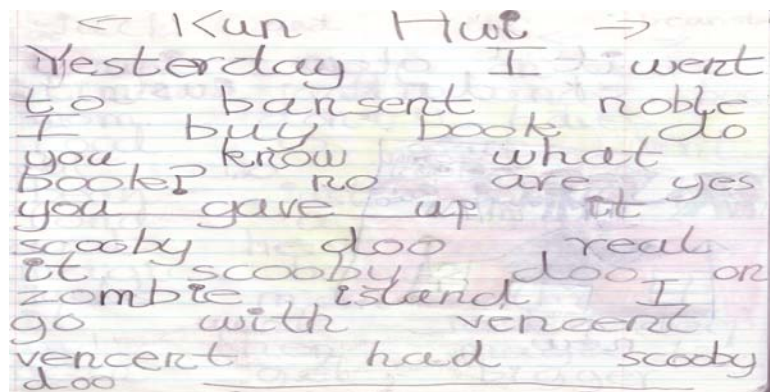 ← Kun Hui →
Yesterday I went
to bansent noble
I buy book do
you know what
book? no are yes
you gave up it
scooby doo real
it scooby doo on
zombie island I
go with vencent
vencent had scooby
doo